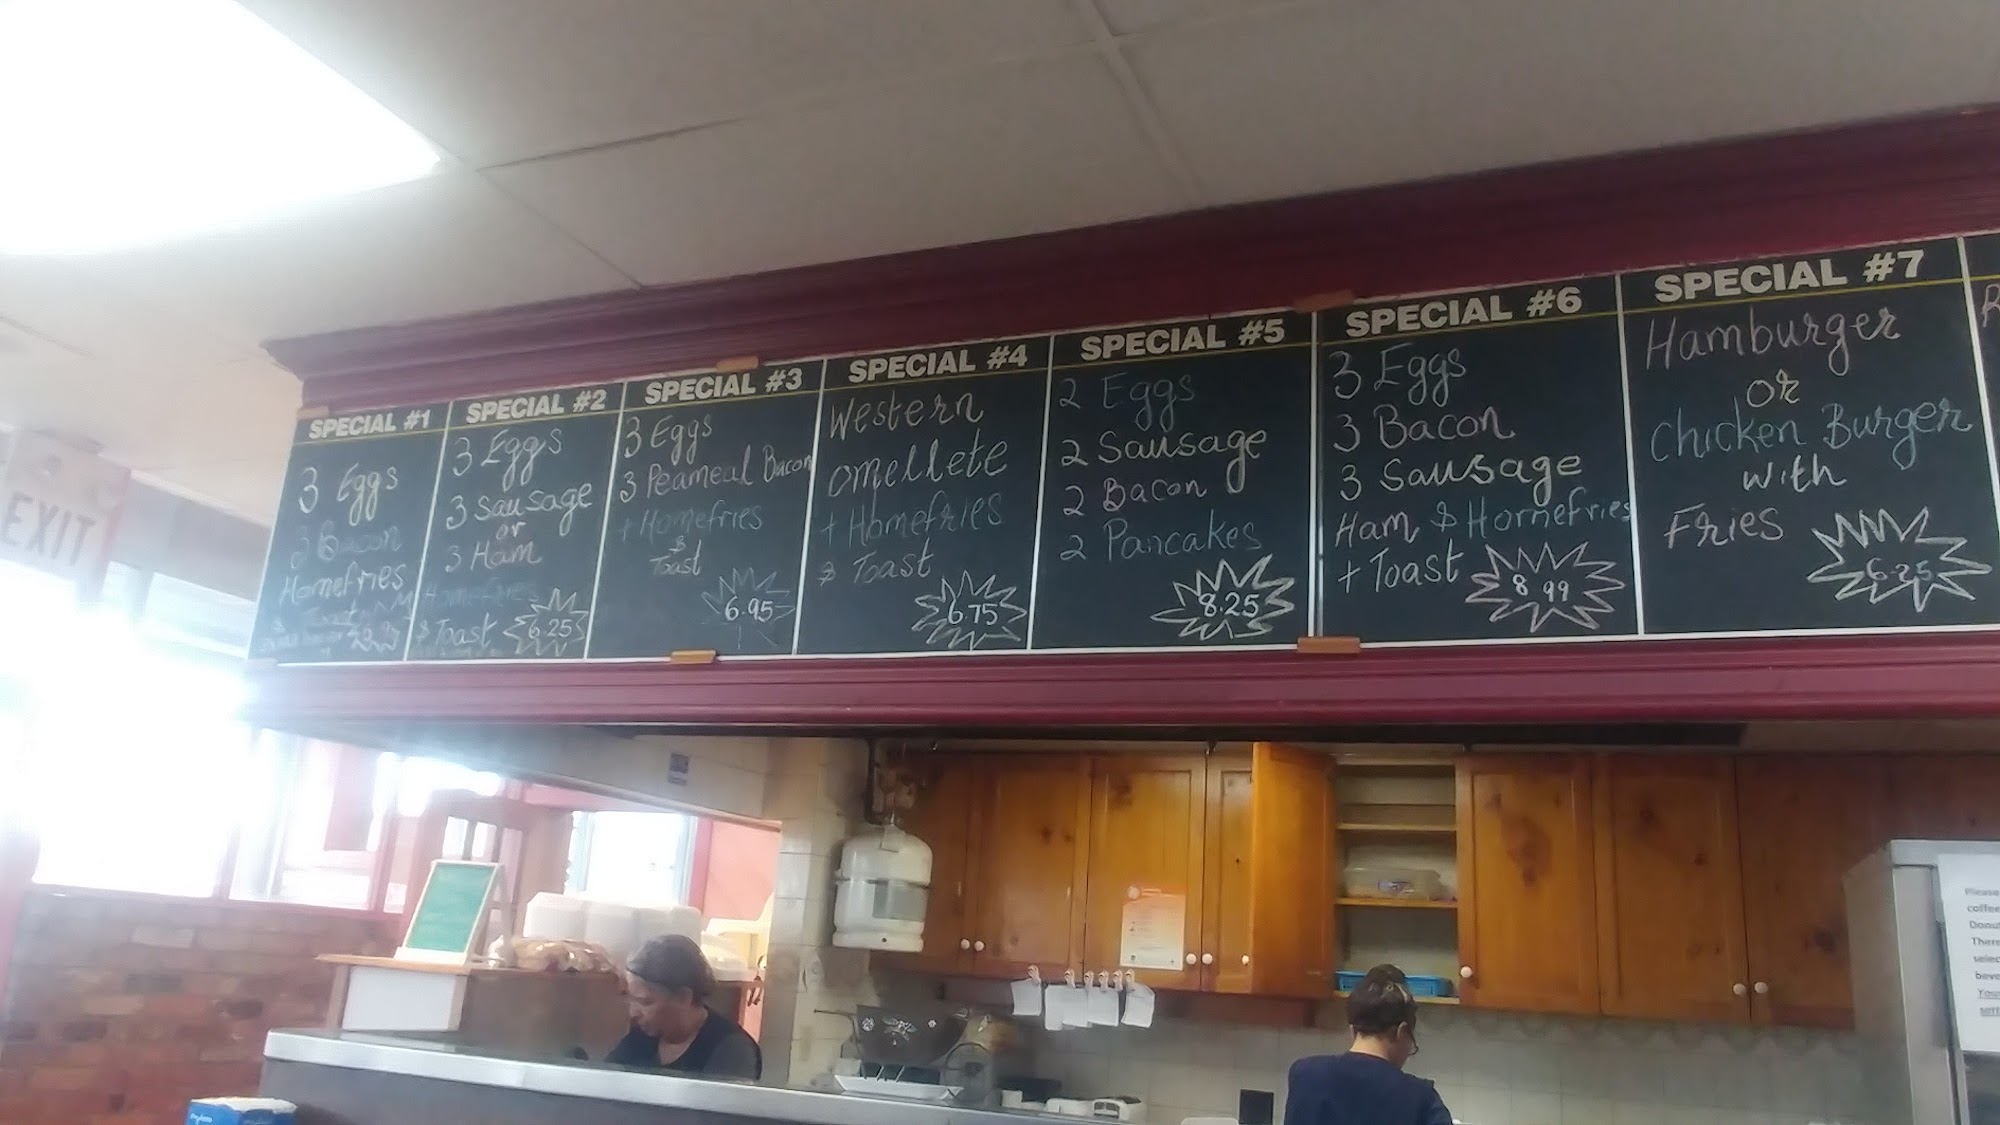 EXIT
SPECIAL #1
3 Eggs
3 Bacon
Homefries
Toast
SPECIAL #2
3 Eggs
3 Sausage
or
3 Ham
Homefries
$ Toast
6.25
SPECIAL #3
3 Eggs
3 Peameal Bacon
+ Homefries
$
Toast
6.95
SPECIAL #4
Western
omellete
+ Homefries
$ Toast
6.75
SPECIAL #5
2 Eggs
2 Sausage
2 Bacon
2 Pancakes
8.25
SPECIAL #6
3 Eggs
3 Bacon
3 Sausage
Ham $ Homefries
+ Toast
8.99
SPECIAL #7
Hamburger
or
Chicken Burger
with
Fries
6.25
Please
coffee